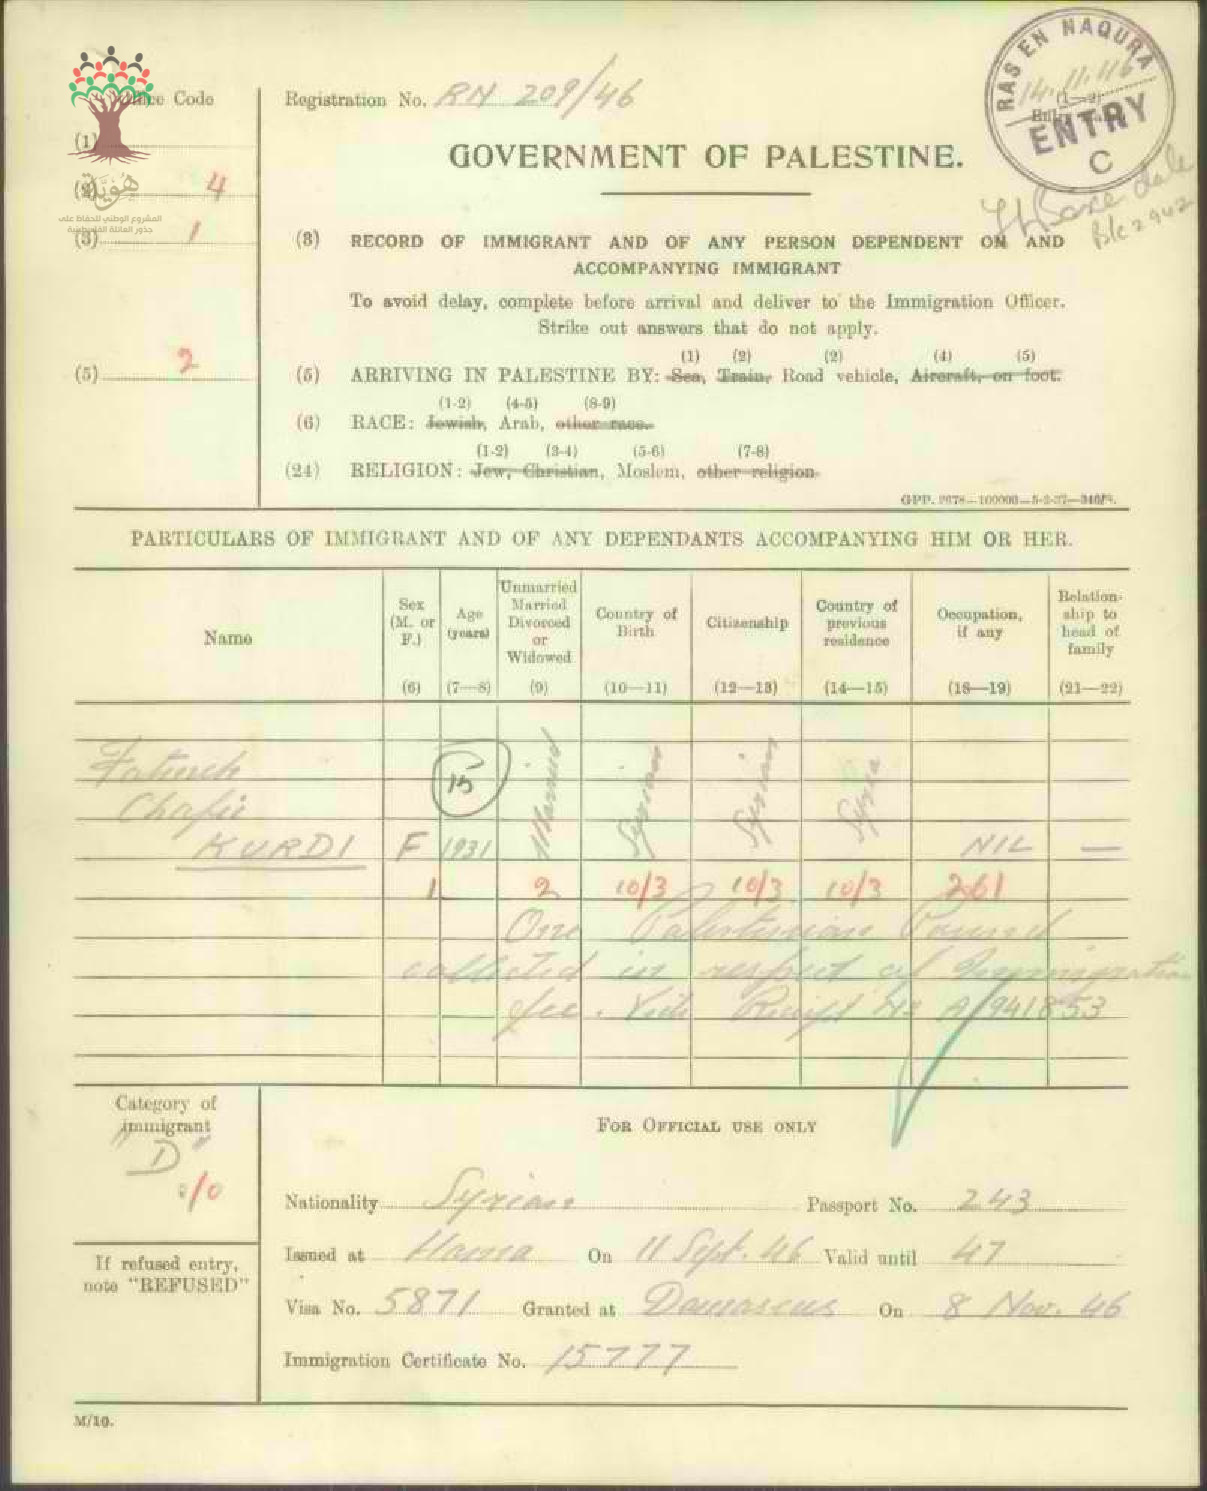 Office Code
Registration No. RN 209/46
RAS EN NAQURA
14.11.46
ENTRY
C
GOVERNMENT OF PALESTINE.
(1)
(2) 4
هُوِيَّة
المشروع الوطني للحفاظ على
جذور العائلة الفلسطينية
(3) 1
Blc 2942
(3) RECORD OF IMMIGRANT AND OF ANY PERSON DEPENDENT ON AND
ACCOMPANYING IMMIGRANT
To avoid delay, complete before arrival and deliver to the Immigration Officer.
Strike out answers that do not apply.
(1) (2) (2) (4) (5)
(5) 2
(5) ARRIVING IN PALESTINE BY: Sea, Train, Road vehicle, Aircraft, on foot.
(1-2) (4-5) (8-9)
(6) RACE: Jewish, Arab, other race.
(1-2) (3-4) (5-6) (7-8)
(24) RELIGION: Jew, Christian, Moslem, other religion
PARTICULARS OF IMMIGRANT AND OF ANY DEPENDANTS ACCOMPANYING HIM OR HER.
Name
Sex (M. or F.) (6)
Age (years) (7—8)
Unmarried Married Divorced or Widowed (9)
Country of Birth (10—11)
Citizenship (12—13)
Country of previous residence (14—15)
Occupation, if any (18—19)
Relationship to head of family (21—22)
15 Married Syrian Syrian Syria
Chafic
KURDI F 1931 NIL —
1 2 10/3 10/3 10/3 261
One Palestinian Pound
collected in respect of Immigration
fee. Vide Receipt No A/941853
Category of
immigrant
"D"
FOR OFFICIAL USE ONLY
Nationality Syrian Passport No. 243
Issued at Hama On 11 Sept. 46 Valid until 47
If refused entry,
note "REFUSED"
Visa No. 5871 Granted at Damascus On 8 Nov. 46
Immigration Certificate No. 15777
M/10.